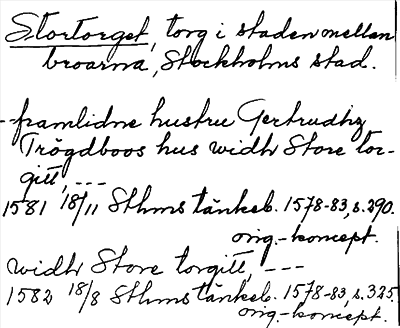 Stortorget, torg i staden mellan
broarna, Stockholms stad.
- framlidne hustru Gertrudhz
Trögdboos hus widh Store tor-
gitt, ---
1581 18/11 Sthms tänkeb. 1578-83, s. 290.
orig.-koncept.
widh Store torgitt, ---
1582 18/8 Sthms tänkeb. 1578-83, s. 325.
orig.-koncept.